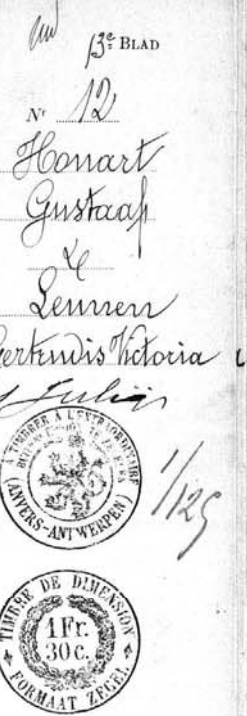 13e BLAD
Nr 12
Honart
Gustaaf
&
Lennen
Gertrudis Victoria
Julia
A TIMBRER A L'EXTRAORDINAIRE
(ANVERS-ANTWERPEN)
1/125
TIMBRE DE DIMENSION
1Fr.
30c.
FORMAAT ZEGEL